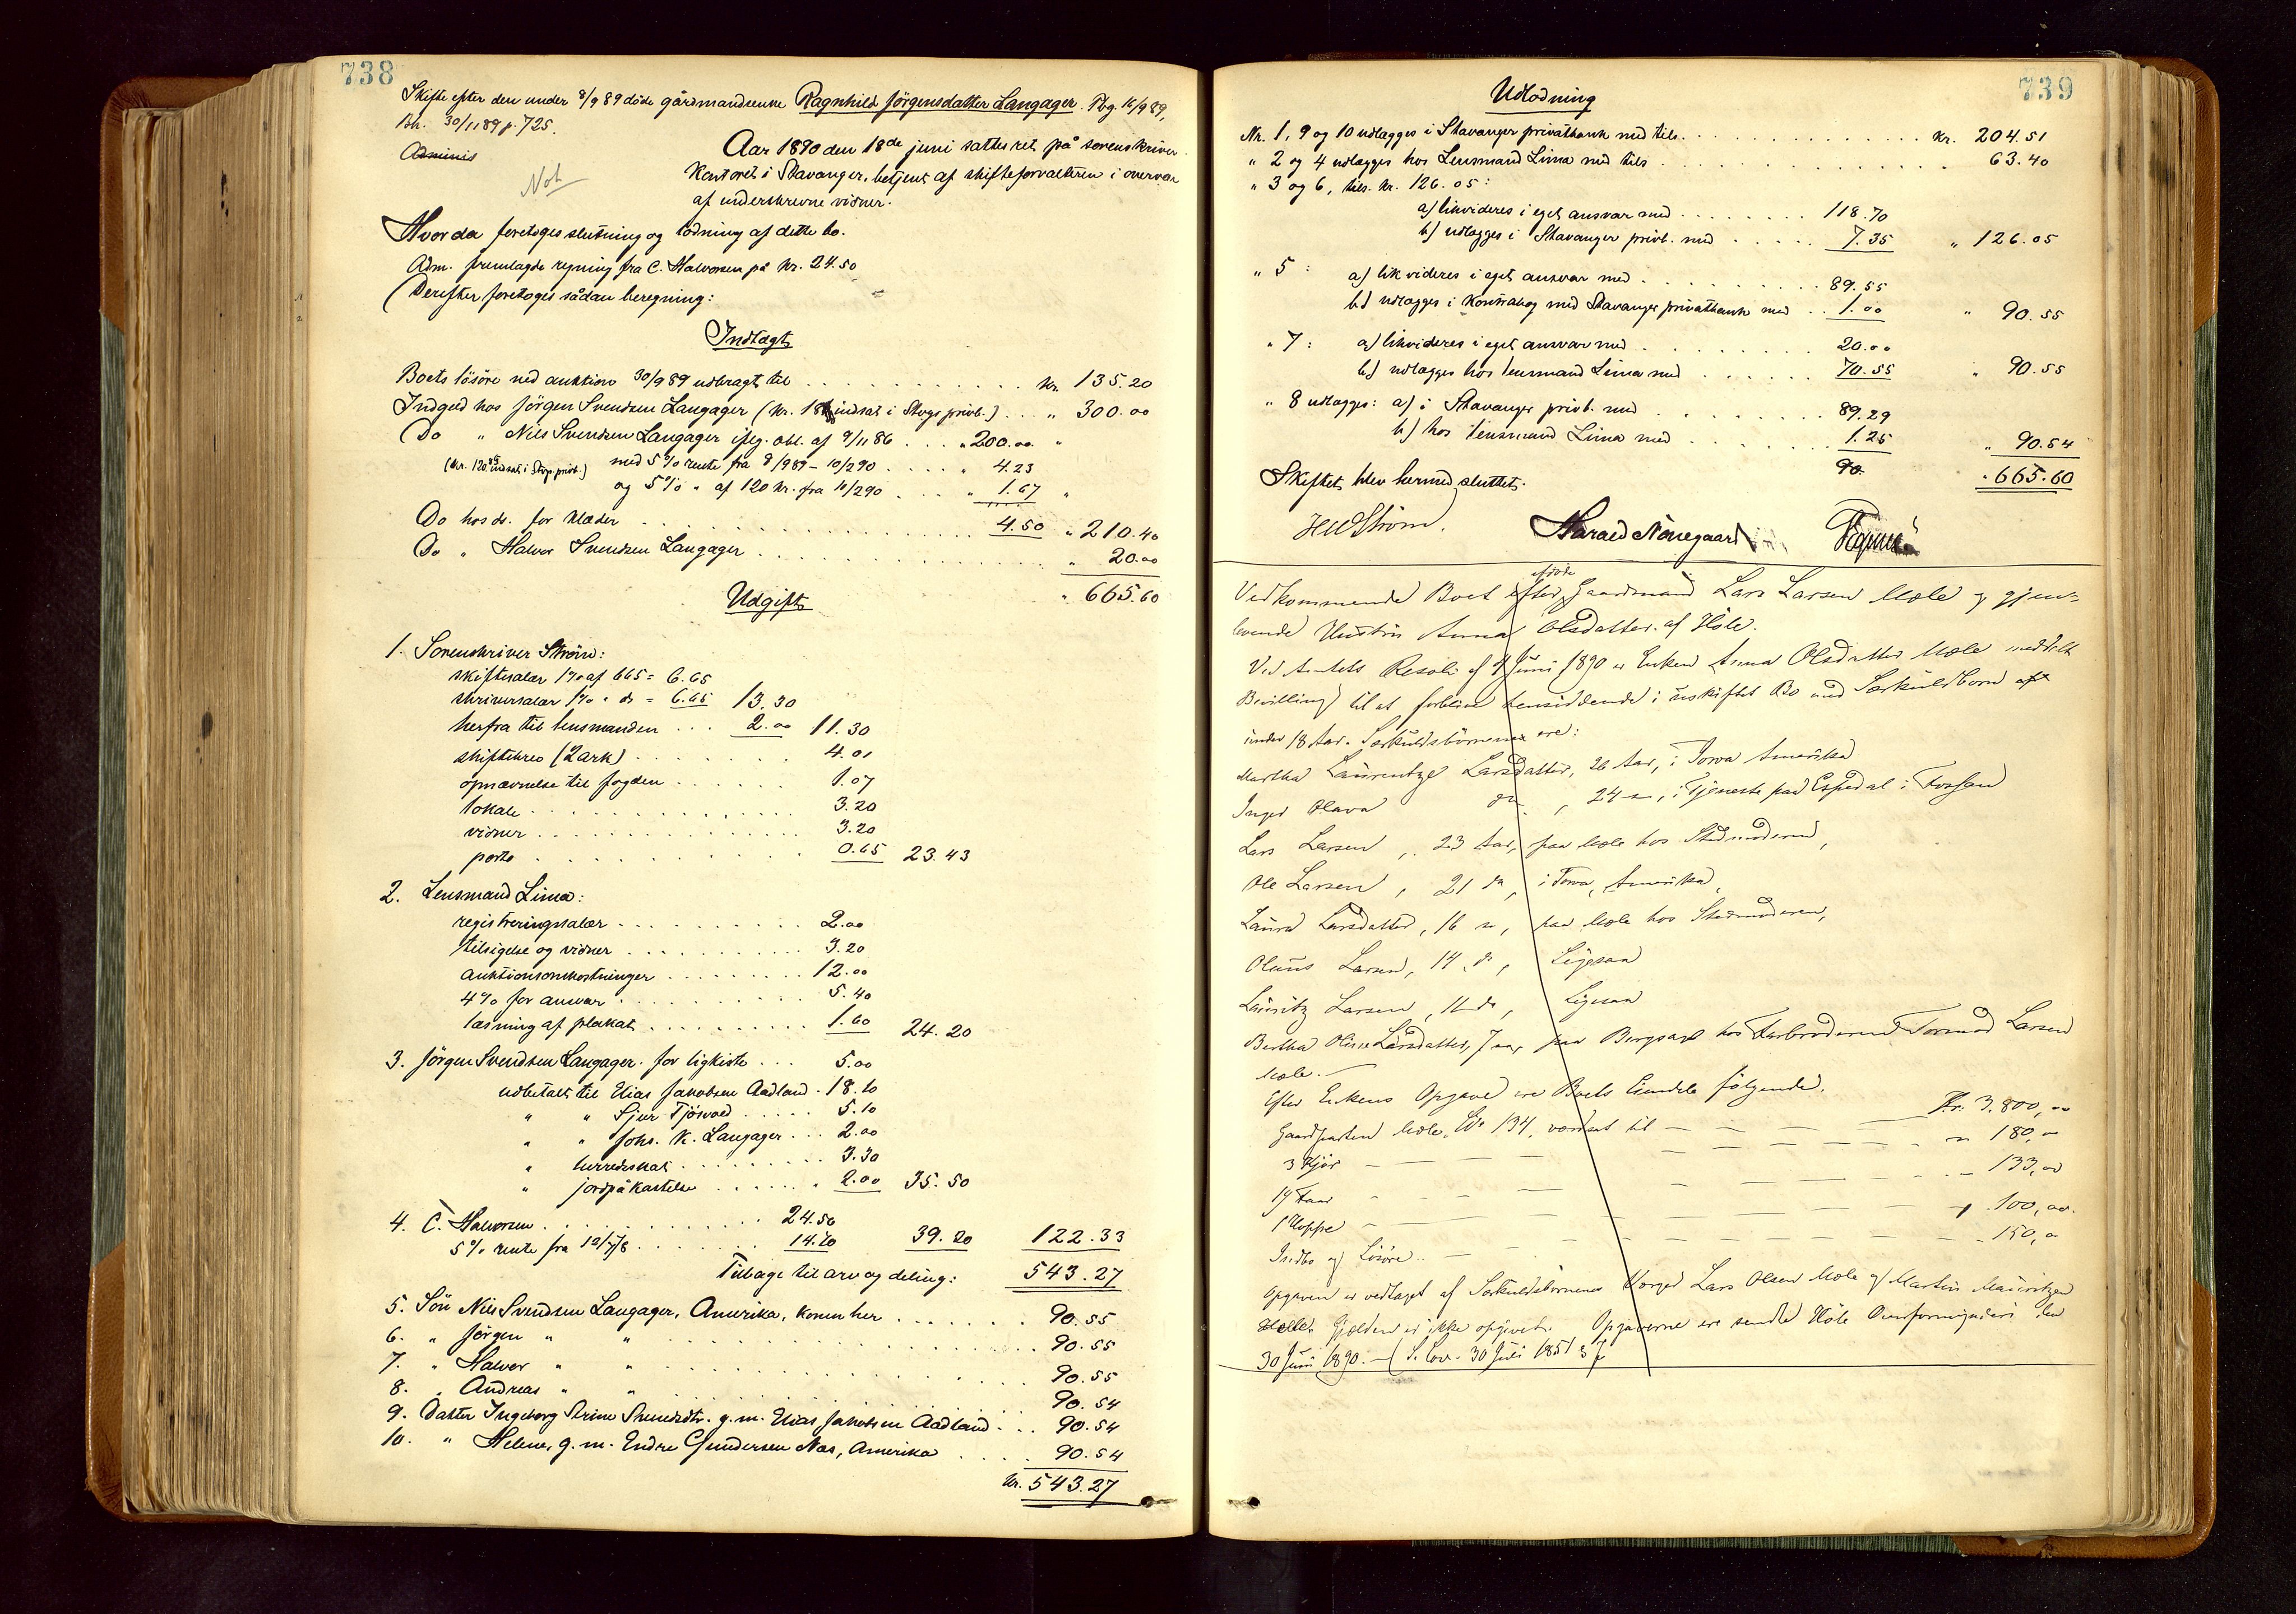 738
Skifte efter den under 8/9 89 døde gårdmandsenke Ragnhild Jörgensdatter Langager. Reg. 16/9 89,
Beh. 30/11 89 p. 725.
Adminis
Not
Aar 1890 den 18de juni sattes ret på sorenskriver
Kontoret i Stavanger, betjent af skifteforvalteren i overvær
af underskrevne vidner.
Hvorda foretoges slutning og lodning af dette bo.
Adm. fremlagde regning fra C. Halvorsen på kr. 24.50
Derefter foretoges sådan beregning:
Indtægt
Boets lösöre ved auktion 30/9 89 udbragt til kr. 135.20
Indgeld hos Jörgen Svendsen Langager (kr. 18 indsat i Stvgr privb.) " 300.00
Do " Nils Svendsen Langager ifg. obl. af 9/11 86 " 200.00 "
(kr. 120 indsat i Stvgr. privb.) med 5% rente fra 8/9 89 - 10/2 90 " 4.23
og 5% " af 120 kr. fra 10/2 90 " 1.67 "
Do hos ds. for klæder 4.50 " 210.40
Do " Halvor Svendsen Langager " 20.00
" 665.60
Udgift
1. Sorenskriver Ström:
skiftesalær 1% af 665 = 6.65
skriversalær 1% " ds = 6.65 13.30
herfra til lensmanden 2.00 11.30
skiftebrev (2 ark) 4.01
opnævnelse til fogden 1.07
lokale 3.20
vidner 3.20
porto 0.65 23.43
2. Lensmand Lima:
registreringsalær 2.00
tilsigelse og vidner 3.20
auktionsomkostninger 12.00
4% for ansvar 5.40
læsning af plakat 1.60 24.20
3. Jörgen Svendsen Langager. for ligkiste 5.00
udbetalt til Elias Jakobsen Aadland 18.10
" " Sjur Tjösvold 5.10
" " Johs. K. Langager 2.00
" herredskat 3.30
" jordpåkastelse 2.00 35.50
4. C. Halvorsen 24.50
5% rente fra 12/7/8 14.70 39.20 122.33
Tilbage til arv og deling: 543.27
5. Sön Nils Svendsen Langager, Amerika, kommer 90.55
6. " Jörgen " " 90.55
7. " Halvor " " 90.55
8. " Andreas " " 90.54
9. Datter Ingeborg Serine Svendsdtr. g.m. Elias Jakobsen Aadland 90.54
10. " Helene, g.m. Endre Gundersen Næs, Amerika 90.54
kr. 543.27
739
Udlodning
Nr. 1, 9 og 10 udlægges i Stavanger privatbank med tils. kr. 204.51
" 2 og 4 udlægges hos Lensmand Lima med tils 63.40
" 3 og 6, tils. kr. 126.05:
a) likvideres i eget ansvar med 118.70
b) udlægges i Stavanger privb. med 7.35 " 126.05
" 5: a) likvideres i eget ansvar med 89.55
b) udlægges i Kontrabog med Stavanger privatbank med 1.00 " 90.55
" 7: a) likvideres i eget ansvar med 20.00
b) udlægges hos lensmand Lima med 70.55 " 90.55
" 8 udlægges: a) i Stavanger privb. med 89.29
b) hos lensmand Lima med 1.25 " 90.54
90. " 665.60
Skiftet blev hermed sluttet.
HWStröm. Harald Nönegaard
Vedkommende Boet efter afdöde Gaardmand Lars Larsen Mæle og gjen=
levende Hustru Anna Olsdatter af Höle.
Ved Amtets Resol. af 4 Juni 1890 er Enken Anna Olsdatter Mæle meddelt
Bevilling til at forblive hensiddende i uskiftet Bo med Særkuldbörn
under 18 Aar. Særkuldsbörnene ere:
Martha Laurentze Larsdatter, 26 Aar, i Iowa Amerika
Inger Olava do, 24 ", i Tjeneste paa Espedal i Fossan
Lars Larsen, 23 Aar, paa Mæle hos Stedmoderen,
Ole Larsen, 21 do, i Iowa, Amerika,
Laura Larsdatter, 16 ", paa Mæle hos Stedmoderen,
Olaus Larsen, 14 do, Ligesaa
Lauritz Larsen, 11 do, Ligesaa
Bertha Oline Larsdatter, 7 aar, paa Bergsagel hos Farbroderen Tormod Larsen
Mæle.
Efter Enkens Opgave ere Boets Eiendele fölgende.
Gaardparten Mæle, No 134, værdsat til Kr. 3.800,00
3 Kjör " 180,"
19 Faar " 133,00
1 Hoppe " 100,00.
Indbo og Lösöre " 150,"
Opgaven er vedtaget af Særkuldsbörnenes Værger Lars Olsen Mæle og Martin Mauritzen
Helle. Gjælden er ikke opgivet. Opgaverne ere sendte Höle Overformynderi den
30 Juni 1890. - (S. Lov. 30 Juli 1851 § 7